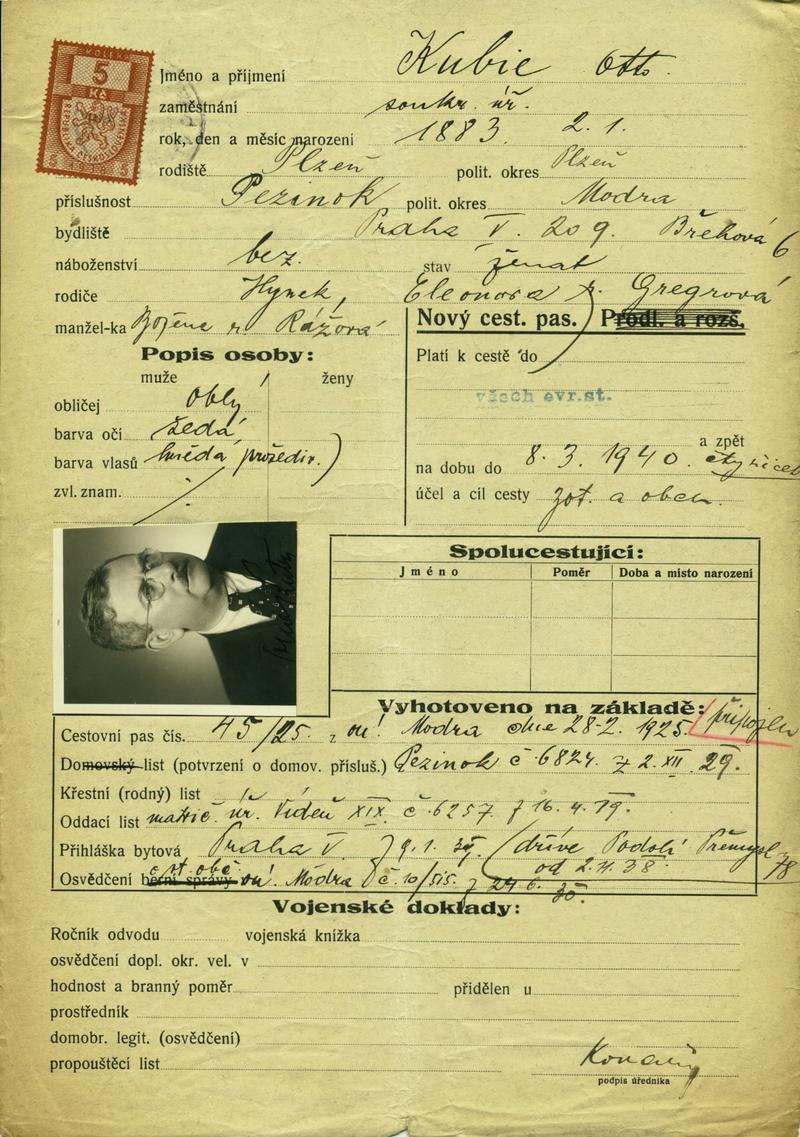 KOLEK
5
Kč
REPUBLIKA ČESKOSLOVENSKÁ
Jméno a příjmení Kubie Otto
zaměstnání soukr. úř.
rok, den a měsíc narození 1883 2.1.
rodiště Plzeň polit. okres Plzeň
příslušnost Pezinok polit. okres Modra
bydliště Praha V. 209. Břehová 6
náboženství bez. stav ženat
rodiče Hynek, Eleonora r. Gregrová
manžel-ka Božena r. Rážová
Nový cest. pas. Prodl. a rozš.
Popis osoby:
muže ženy
obličej oblý
barva očí šedá
barva vlasů hnědá prošediv.)
zvl. znam.
Platí k cestě do
všech evr.st.
a zpět
na dobu do 8. 3. 1940. čtyřicet
účel a cíl cesty zot. a obch.
Spolucestující:
Jméno Poměr Doba a místo narození
Vyhotoveno na základě: připojen
Cestovní pas čís. 45/25. z oú Modra dne 28-2. 1925.
Domovský list (potvrzení o domov. přísluš.) Pezinok č 6824. z 2. XII. 29.
Křestní (rodný) list
Oddací list matrič. úř. Vídeň XIX. č. 6257 z 16. 4. 19.
Přihláška bytová Praha V. z 9. 1. 39. (dříve Podolí Přemysl. 78
od 2. 11. 38.
Osvědčení berní správy o st. obč. oú Modra č. 10/515. z 24. 6. 30.
Vojenské doklady:
Ročník odvodu vojenská knížka
osvědčení dopl. okr. vel. v
hodnost a branný poměr přidělen u
prostředník
domobr. legit. (osvědčení)
propouštěcí list
podpis úředníka